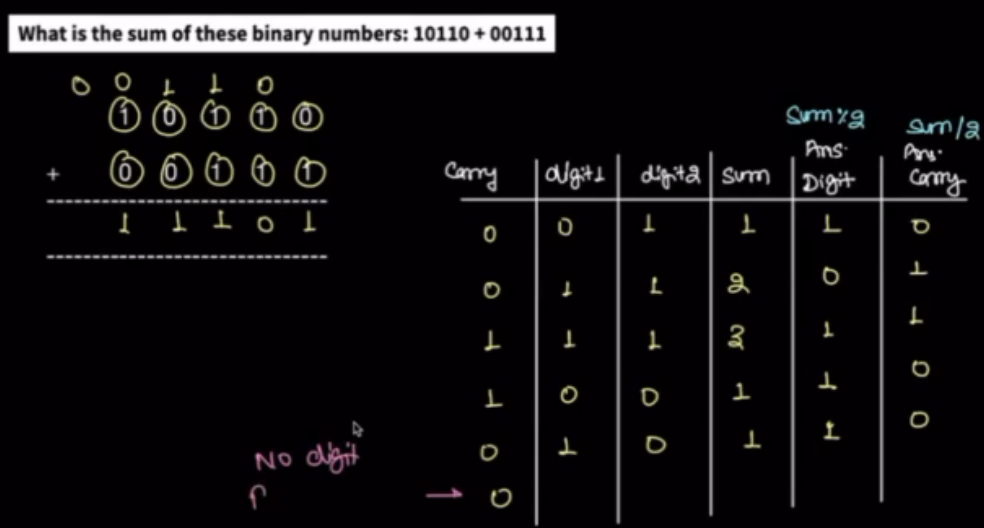 What is the sum of these binary numbers: 10110 + 00111
0 0 1 1 0
1 0 1 1 0
+ 0 0 1 1 1
1 1 1 0 1
Sum%2 Sum/2
Carry digit1 digit2 Sum Ans. Digit Ans. Carry
0 0 1 1 1 0
0 1 1 2 0 1
1 1 1 3 1 1
1 0 0 1 1 0
0 1 0 1 1 0
No digit
→ 0